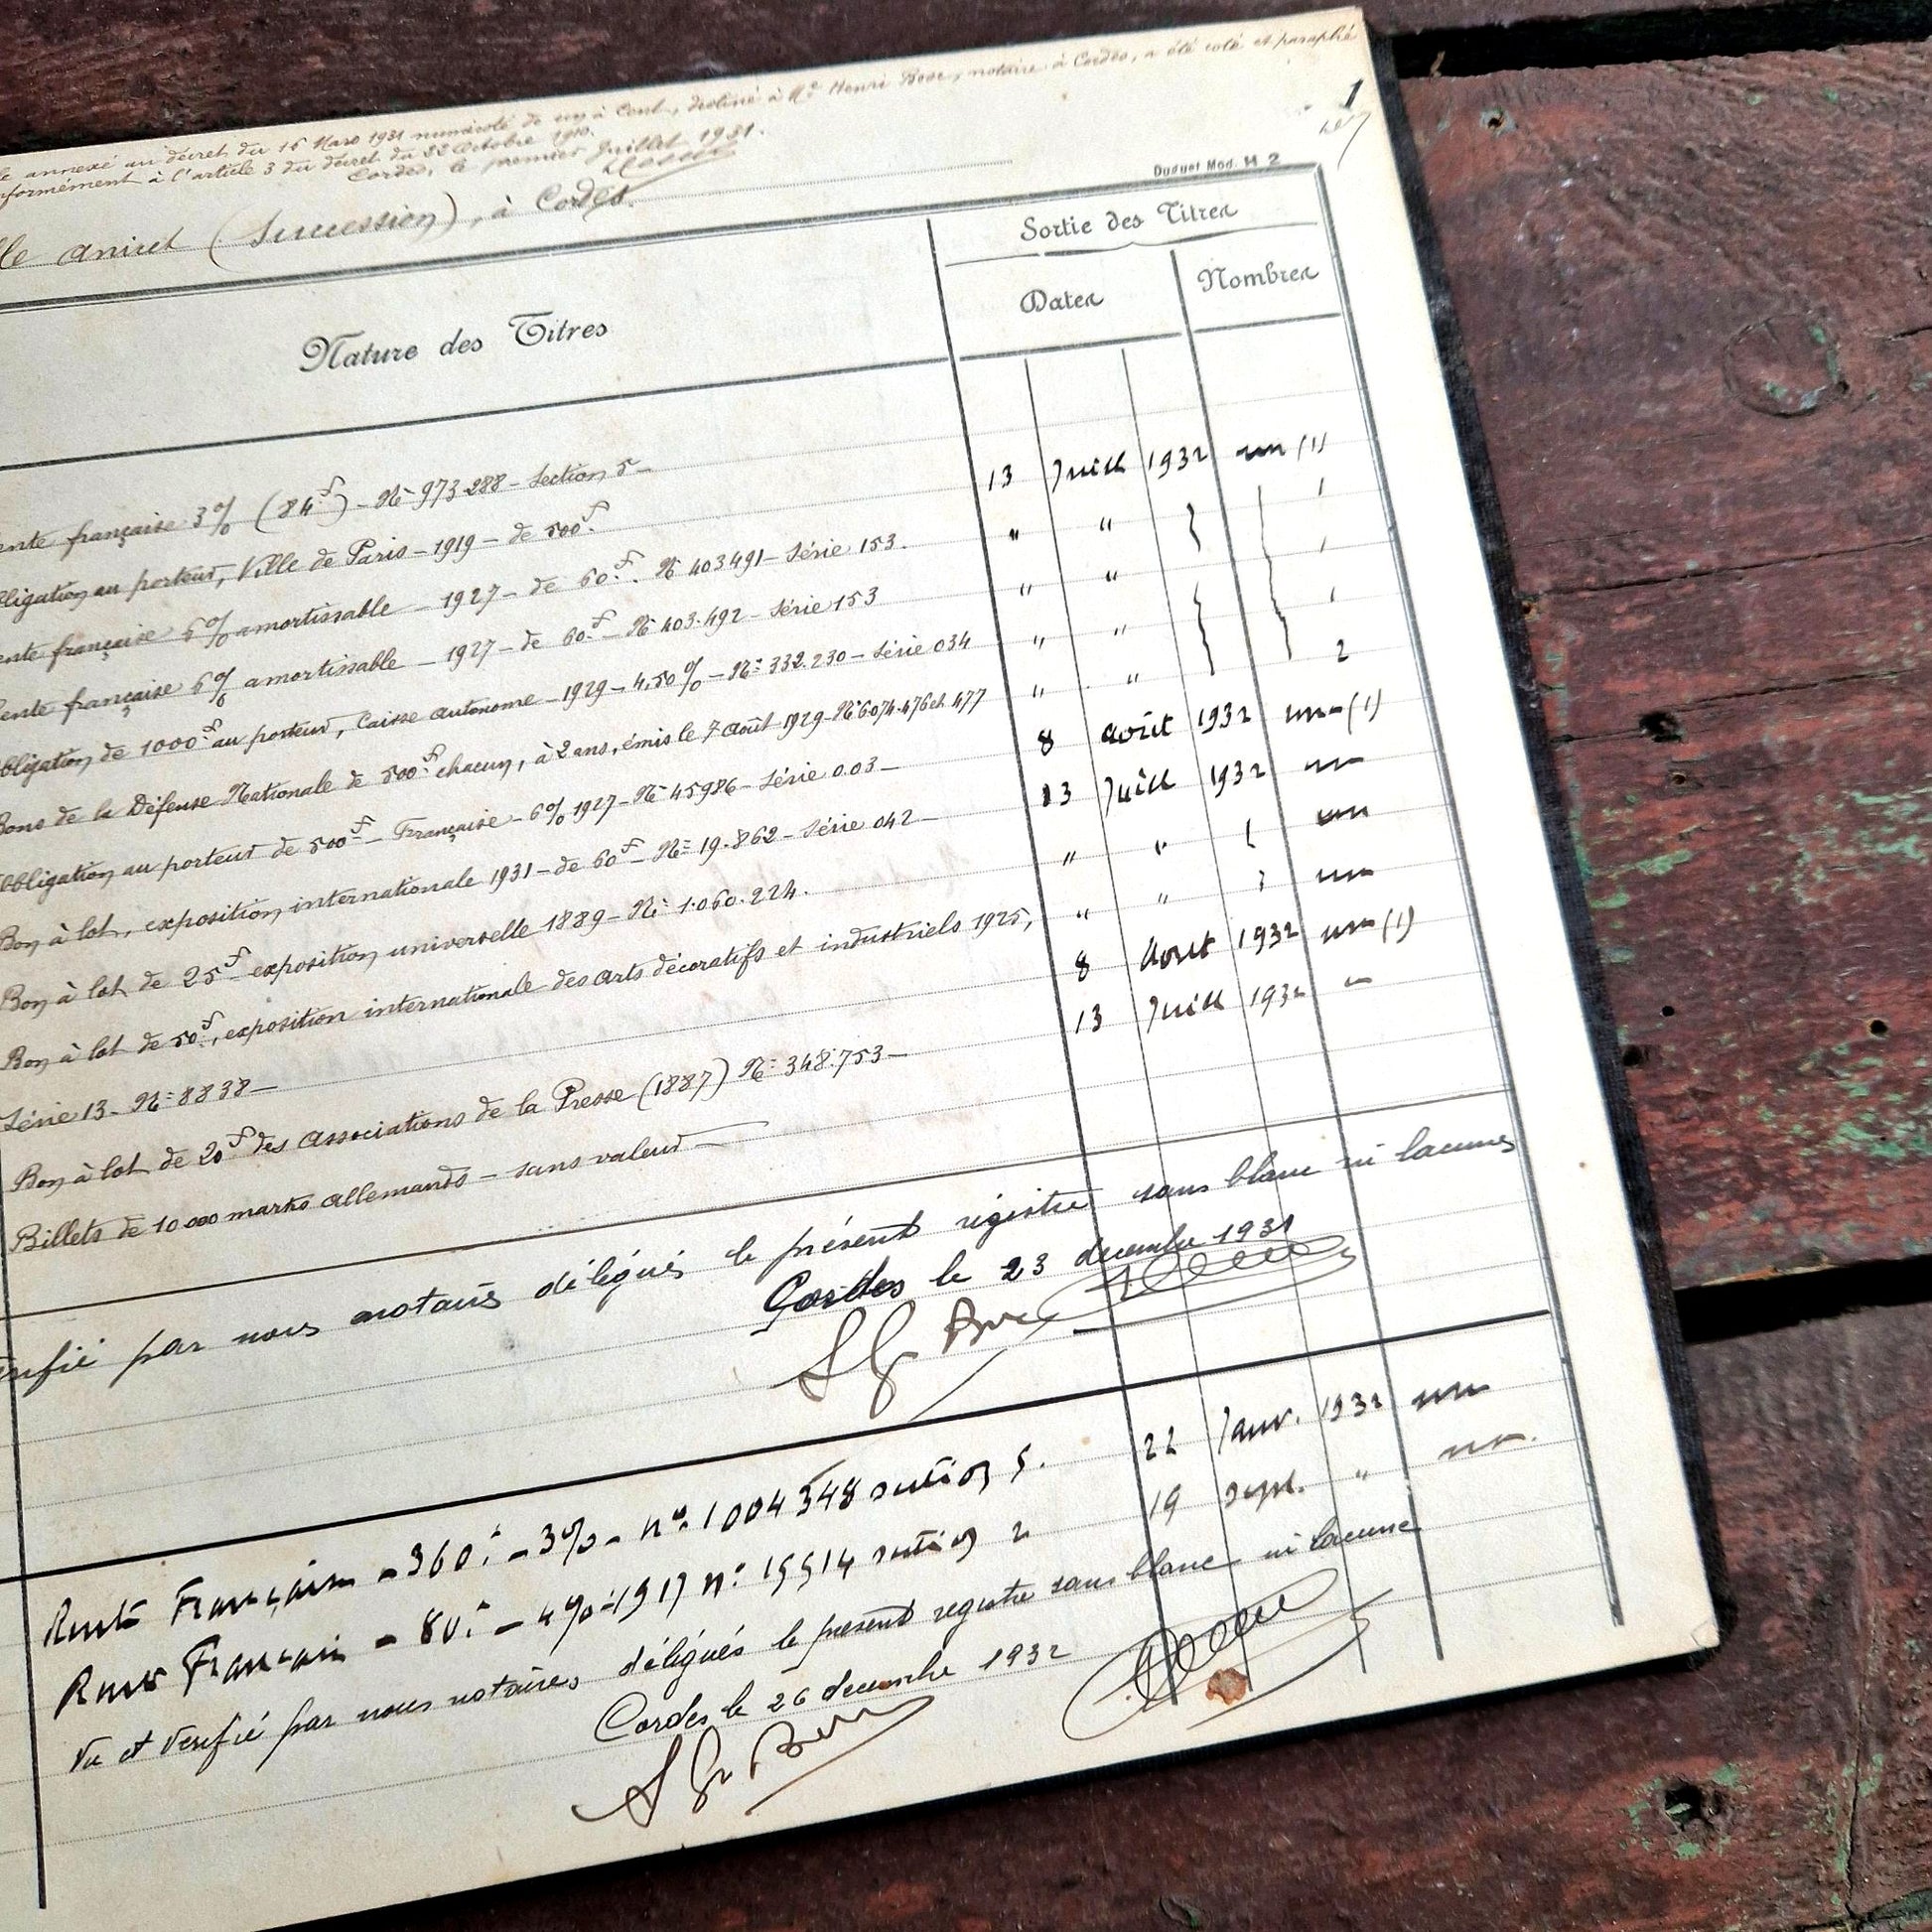 le annexé au décret du 15 Mars 1931 numéroté de un à Cent, destiné à Me Henri Bosc, notaire à Cordes, a été coté et paraphé
nformément à l'article 3 du décret du 22 Octobre 1910.
Cordes, le premier Juillet 1931.
1
Duduet Mod. H 2
lle (Succession), à Cordes.
Nature des Titres
Sortie des Titres
Dates
Nombres
ente française 3% (84f) - No 973.288 - Section 5 - 13 Juill 1932 un (1)
bligation au porteur, Ville de Paris - 1919 - de 500f. " " 1
ente française 6% amortissable - 1927 - de 60f. No 403491 - Série 153. " " 1
ente française 6% amortissable - 1927 - de 60f - No 403.492 - Série 153 " " 1
bligation de 1000f au porteur, Caisse autonome - 1929 - 4,50% - No 332.230 - Série 034 " " 2
Bons de la Défense Nationale de 500f chacun, à 2 ans, émis le 7 Août 1929 - No 6.074.476 et 477 8 août 1932 un (1)
Obligation au porteur de 500f - Française - 6% 1927 - No 45986 - Série 0.03 - 13 Juill 1932 un
Bon à lot, exposition internationale 1931 - de 60f - No 19.862 - Série 042 - " " un
Bon à lot de 25f exposition universelle 1889 - No 1.060.224. " " un
Bon à lot de 50f, exposition internationale des Arts décoratifs et industriels 1925, 8 Aout 1932 un (1)
Série 13 - No 8838 - 13 Juill 1932 -
Bon à lot de 20f des Associations de la Presse (1887) No 348.753 -
Billets de 10 000 marks Allemands - sans valeur -
érifié par nous notaires délégués le présent régistre sans blanc ni lacunes
Cordes le 23 décembre 1931
Rente Française - 360f - 3% - no 1004548 section 5. 22 Janv. 1932 un
Rente Française - 80f - 4% - 1917 no 15514 section 2 19 sept. " un.
Vu et vérifié par nous notaires délégués le présent registre sans blanc ni lacune
Cordes le 26 decembre 1932